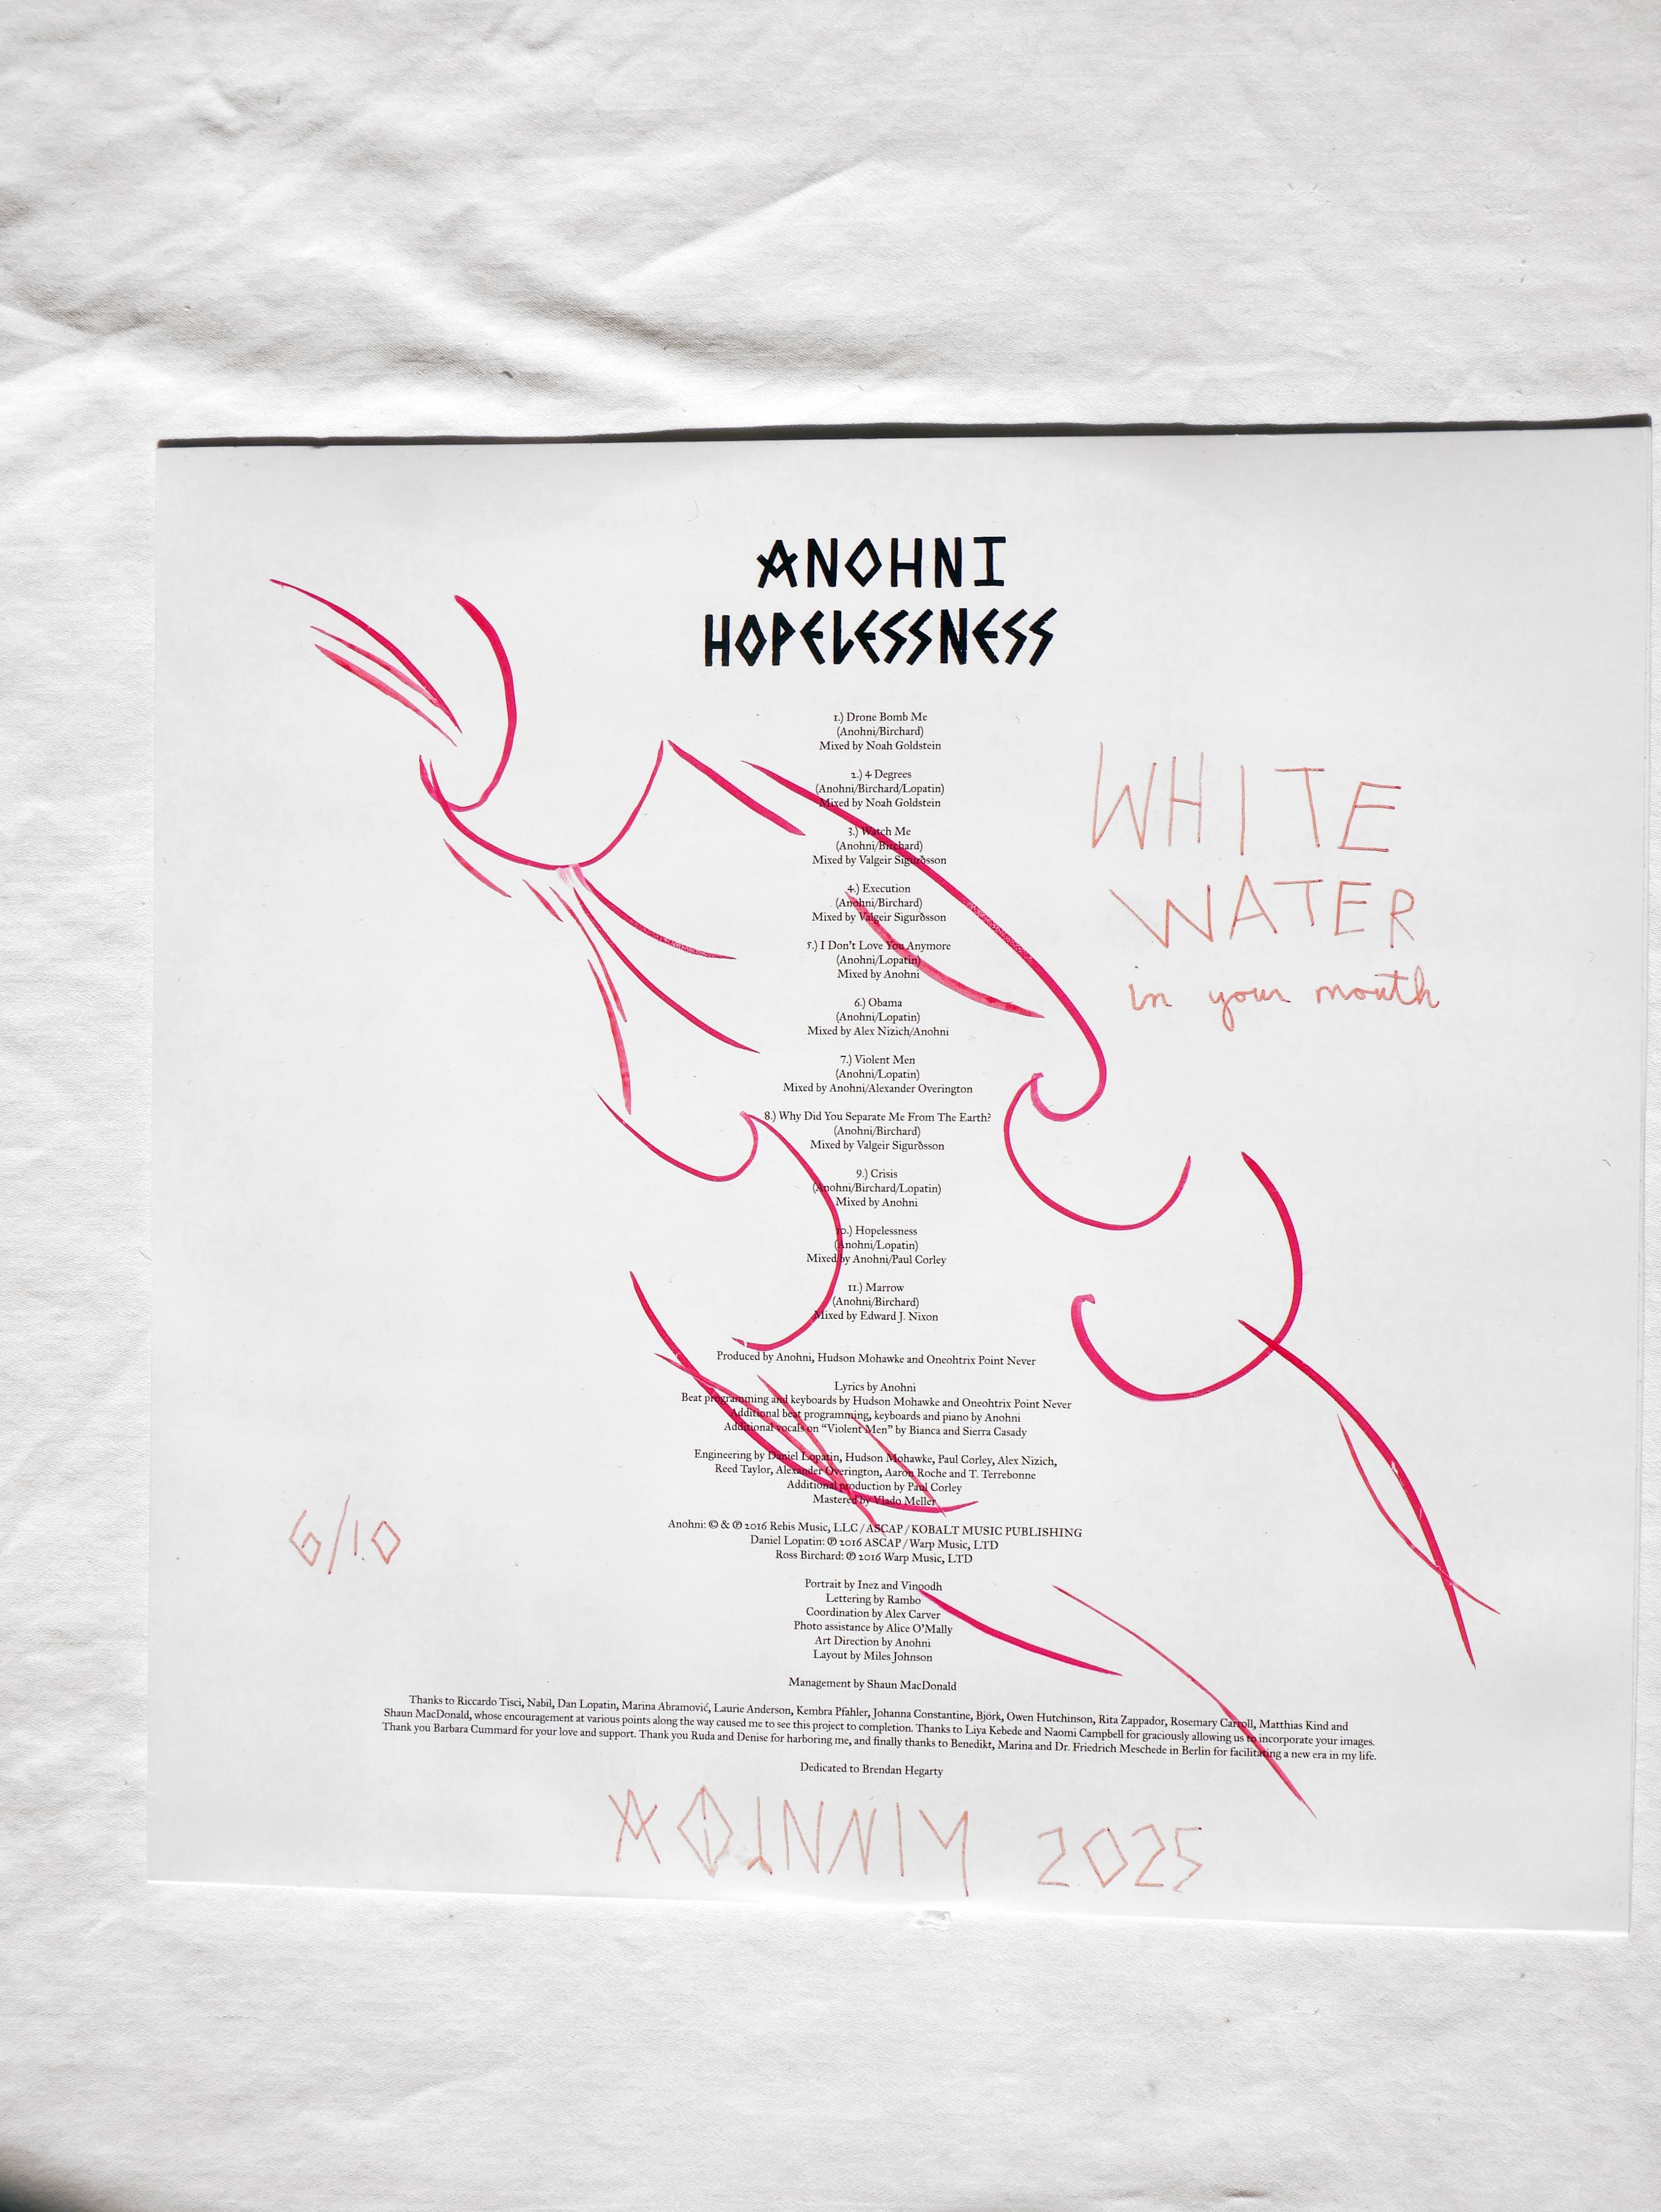 ANOHNI
HOPELESSNESS
1.) Drone Bomb Me
(Anohni/Birchard)
Mixed by Noah Goldstein
2.) 4 Degrees
(Anohni/Birchard/Lopatin)
Mixed by Noah Goldstein
3.) Watch Me
(Anohni/Birchard)
Mixed by Valgeir Sigurðsson
4.) Execution
(Anohni/Birchard)
Mixed by Valgeir Sigurðsson
5.) I Don't Love You Anymore
(Anohni/Lopatin)
Mixed by Anohni
6.) Obama
(Anohni/Lopatin)
Mixed by Alex Nizich/Anohni
7.) Violent Men
(Anohni/Lopatin)
Mixed by Anohni/Alexander Overington
8.) Why Did You Separate Me From The Earth?
(Anohni/Birchard)
Mixed by Valgeir Sigurðsson
9.) Crisis
(Anohni/Birchard/Lopatin)
Mixed by Anohni
10.) Hopelessness
(Anohni/Lopatin)
Mixed by Anohni/Paul Corley
11.) Marrow
(Anohni/Birchard)
Mixed by Edward J. Nixon
WHITE
WATER
in your mouth
Produced by Anohni, Hudson Mohawke and Oneohtrix Point Never
Lyrics by Anohni
Beat programming and keyboards by Hudson Mohawke and Oneohtrix Point Never
Additional beat programming, keyboards and piano by Anohni
Additional vocals on “Violent Men” by Bianca and Sierra Casady
Engineering by Daniel Lopatin, Hudson Mohawke, Paul Corley, Alex Nizich,
Reed Taylor, Alexander Overington, Aaron Roche and T. Terrebonne
Additional production by Paul Corley
Mastered by Vlado Meller
6/10
Anohni: © & ℗ 2016 Rebis Music, LLC / ASCAP / KOBALT MUSIC PUBLISHING
Daniel Lopatin: ℗ 2016 ASCAP / Warp Music, LTD
Ross Birchard: ℗ 2016 Warp Music, LTD
Portrait by Inez and Vinoodh
Lettering by Rambo
Coordination by Alex Carver
Photo assistance by Alice O'Mally
Art Direction by Anohni
Layout by Miles Johnson
Management by Shaun MacDonald
Thanks to Riccardo Tisci, Nabil, Dan Lopatin, Marina Abramović, Laurie Anderson, Kembra Pfahler, Johanna Constantine, Björk, Owen Hutchinson, Rita Zappador, Rosemary Carroll, Matthias Kind and
Shaun MacDonald, whose encouragement at various points along the way caused me to see this project to completion. Thanks to Liya Kebede and Naomi Campbell for graciously allowing us to incorporate your images.
Thank you Barbara Cummard for your love and support. Thank you Ruda and Denise for harboring me, and finally thanks to Benedikt, Marina and Dr. Friedrich Meschede in Berlin for facilitating a new era in my life.
Dedicated to Brendan Hegarty
2025